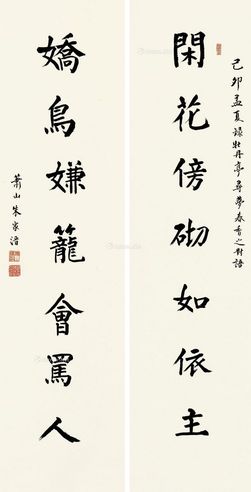 己卯孟夏录牡丹亭寻夢春香之对語
閑花傍砌如依主
嬌鳥嫌籠會罵人
萧山朱家溍